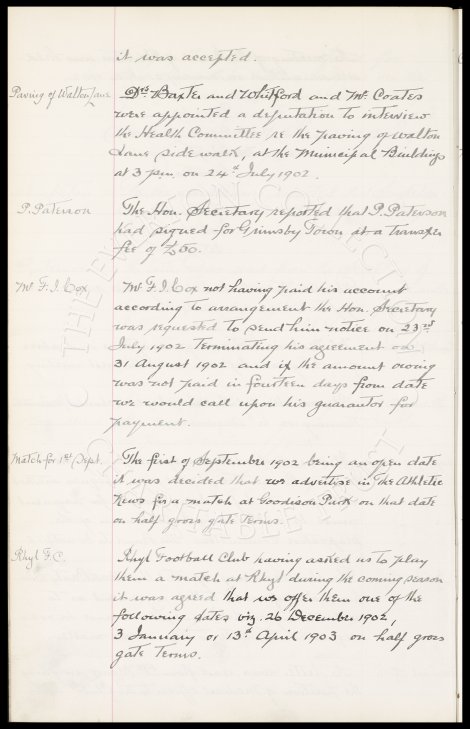 it was accepted.
Paving of Walton Lane
Drs Baxter and Whitford and Mr Coates
were appointed a deputation to interview
the Health Committee re the paving of Walton
Lane side walk, at the Municipal Buildings
at 3 p.m. on 24th July 1902.
P. Paterson
The Hon. Secretary reported that P. Paterson
had signed for Grimsby Town at a transfer
fee of £50.
Mr F. J. Cox
Mr F. J. Cox not having paid his account
according to arrangement the Hon. Secretary
was requested to send him notice on 23rd
July 1902 terminating his agreement on
31 August 1902 and if the amount owing
was not paid in fourteen days from date
we would call upon his guarantor for
payment.
Match for 1st Sept.
The first of September 1902 being an open date
it was decided that we advertise in The Athletic
News for a match at Goodison Park on that date
on half gross gate terms.
Rhyl F.C.
Rhyl Football Club having asked us to play
them a match at Rhyl during the coming season
it was agreed that we offer them one of the
following dates viz. 26 December 1902,
3 January or 13th April 1903 on half gross
gate terms.
THE EVERTON COLLECTION
CHARITABLE TRUST